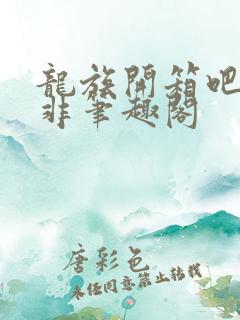 龍族開箱吧
非筆趣閣
唐彩色
未经同意禁止转载